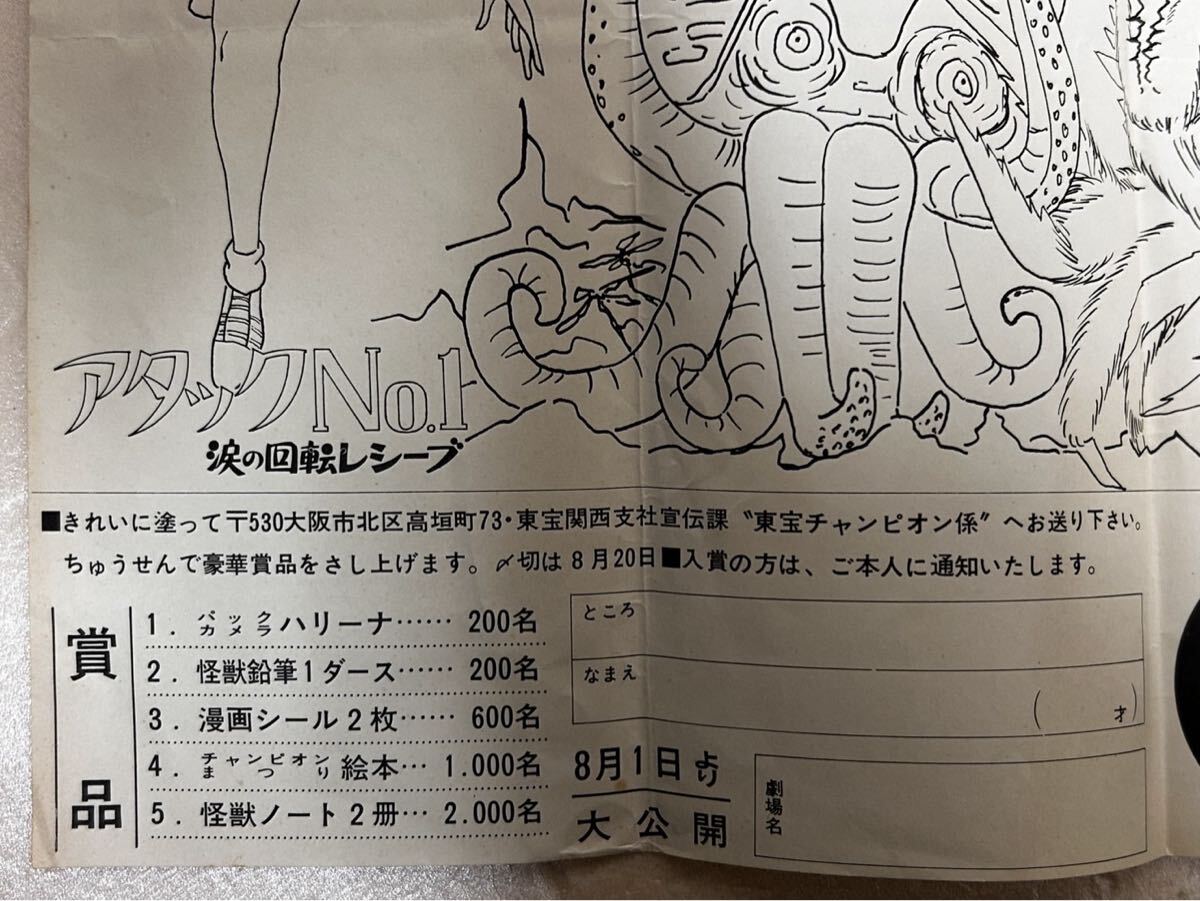 アタックNo.1
涙の回転レシーブ
■きれいに塗って〒530大阪市北区高垣町73・東宝関西支社宣伝課〝東宝チャンピオン係〟へお送り下さい。
ちゅうせんで豪華賞品をさし上げます。〆切は8月20日■入賞の方は、ご本人に通知いたします。
賞品
1. パックカメラハリーナ…… 200名
2. 怪獣鉛筆1ダース…… 200名
3. 漫画シール2枚…… 600名
4. チャンピオンまつり絵本… 1.000名
5. 怪獣ノート2冊… 2.000名
ところ
なまえ
( 才)
8月1日より
大公開
劇場名